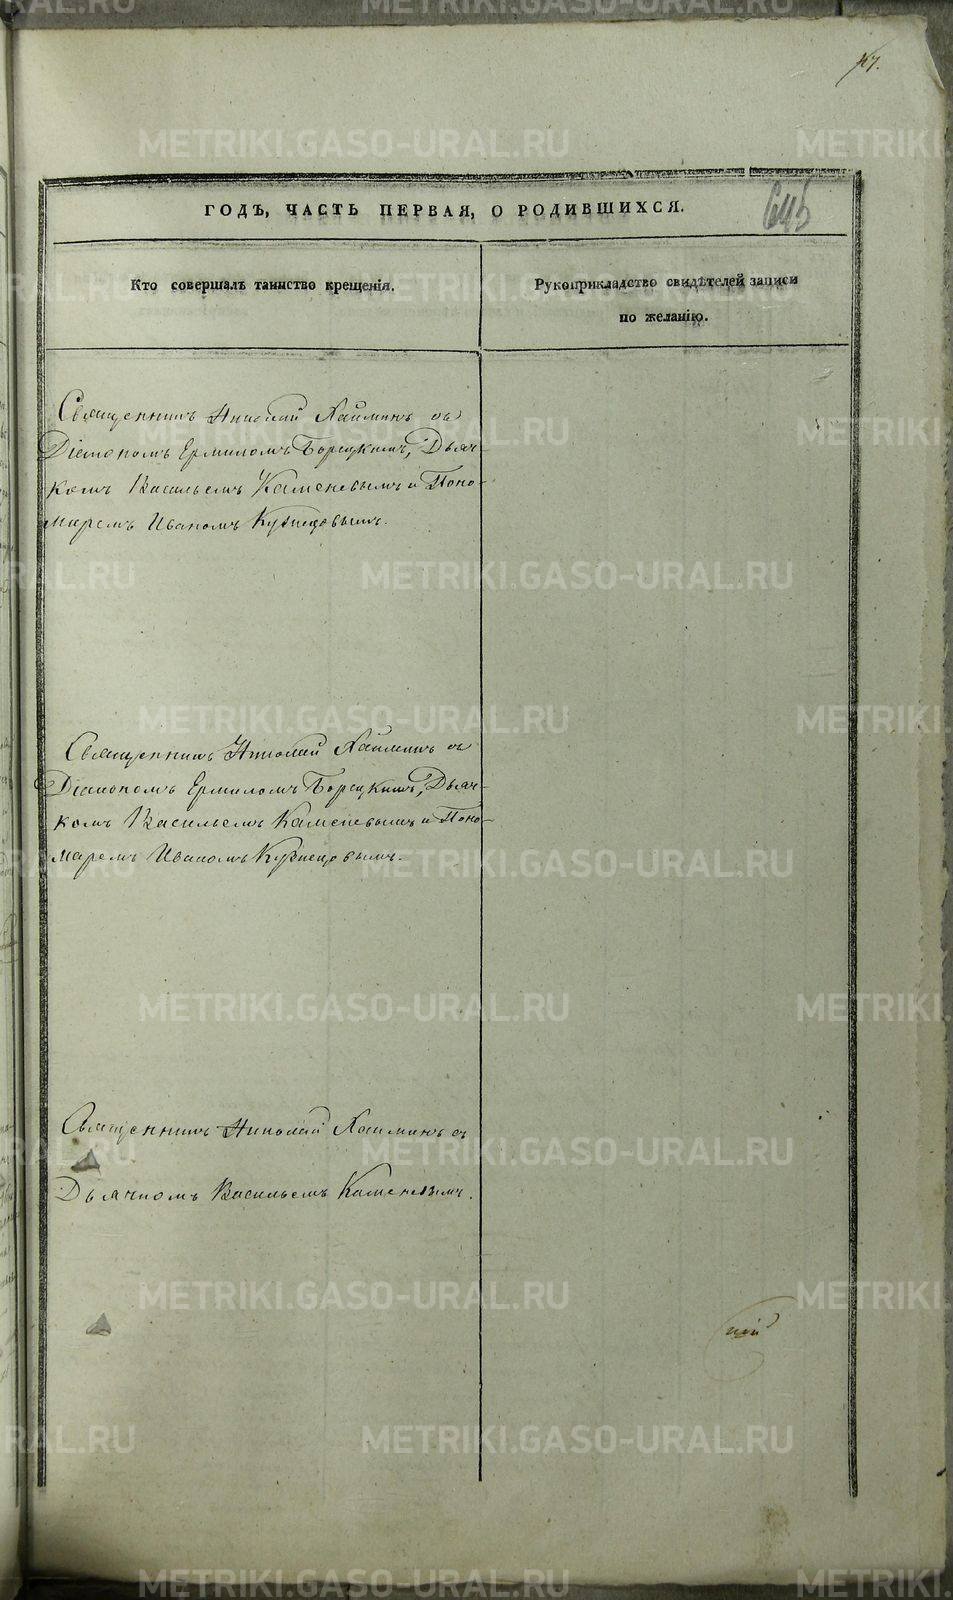 47.
645
ГОДЪ, ЧАСТЬ ПЕРВАЯ, О РОДИВШИХСЯ.
Кто совершалъ таинство крещенія.
Рукоприкладство свидѣтелей записи
по желанію.
Священникъ Николай Хламинъ съ
Діакономъ Ермиломъ Борецкимъ, Дьяч-
комъ Васильемъ Каменевымъ и Поно-
маремъ Иваномъ Кузнецовымъ.
Священникъ Николай Хламинъ съ
Діакономъ Ермиломъ Борецкимъ, Дьяч-
комъ Васильемъ Каменевымъ и Поно-
маремъ Иваномъ Кузнецовымъ.
Священникъ Николай Хламинъ съ
Дьячкомъ Васильемъ Каменевымъ.
METRIKI.GASO-URAL.RU